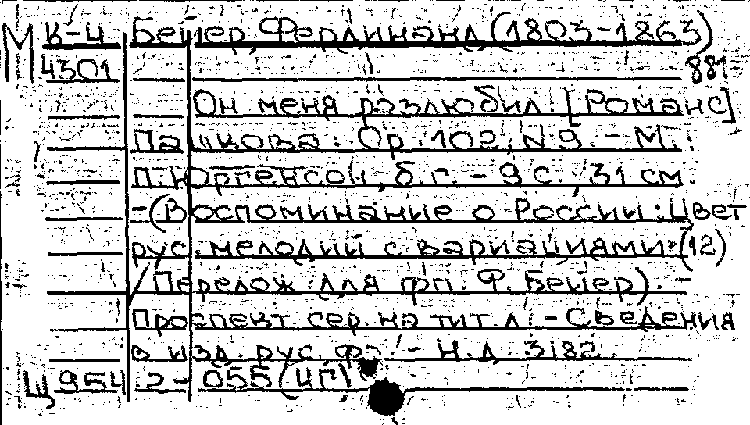 М К-4 Бейер, Фердинанд (1803-1863)
4301 881
Он меня разлюбил! [Романс]
Пашкова. Op. 102, N 9. - М.:
П. Юргенсон, б.г. - 9 с., 31 см.
- (Воспоминание о России: Цвет
рус. мелодий с вариациями: (12)
/ Перелож. для фп. Ф. Бейер). -
Проспект сер. на тит. л. - Сведения
в изд. рус. фр. - Н.д. 3182.
Щ 954.2-055 (ИГ)